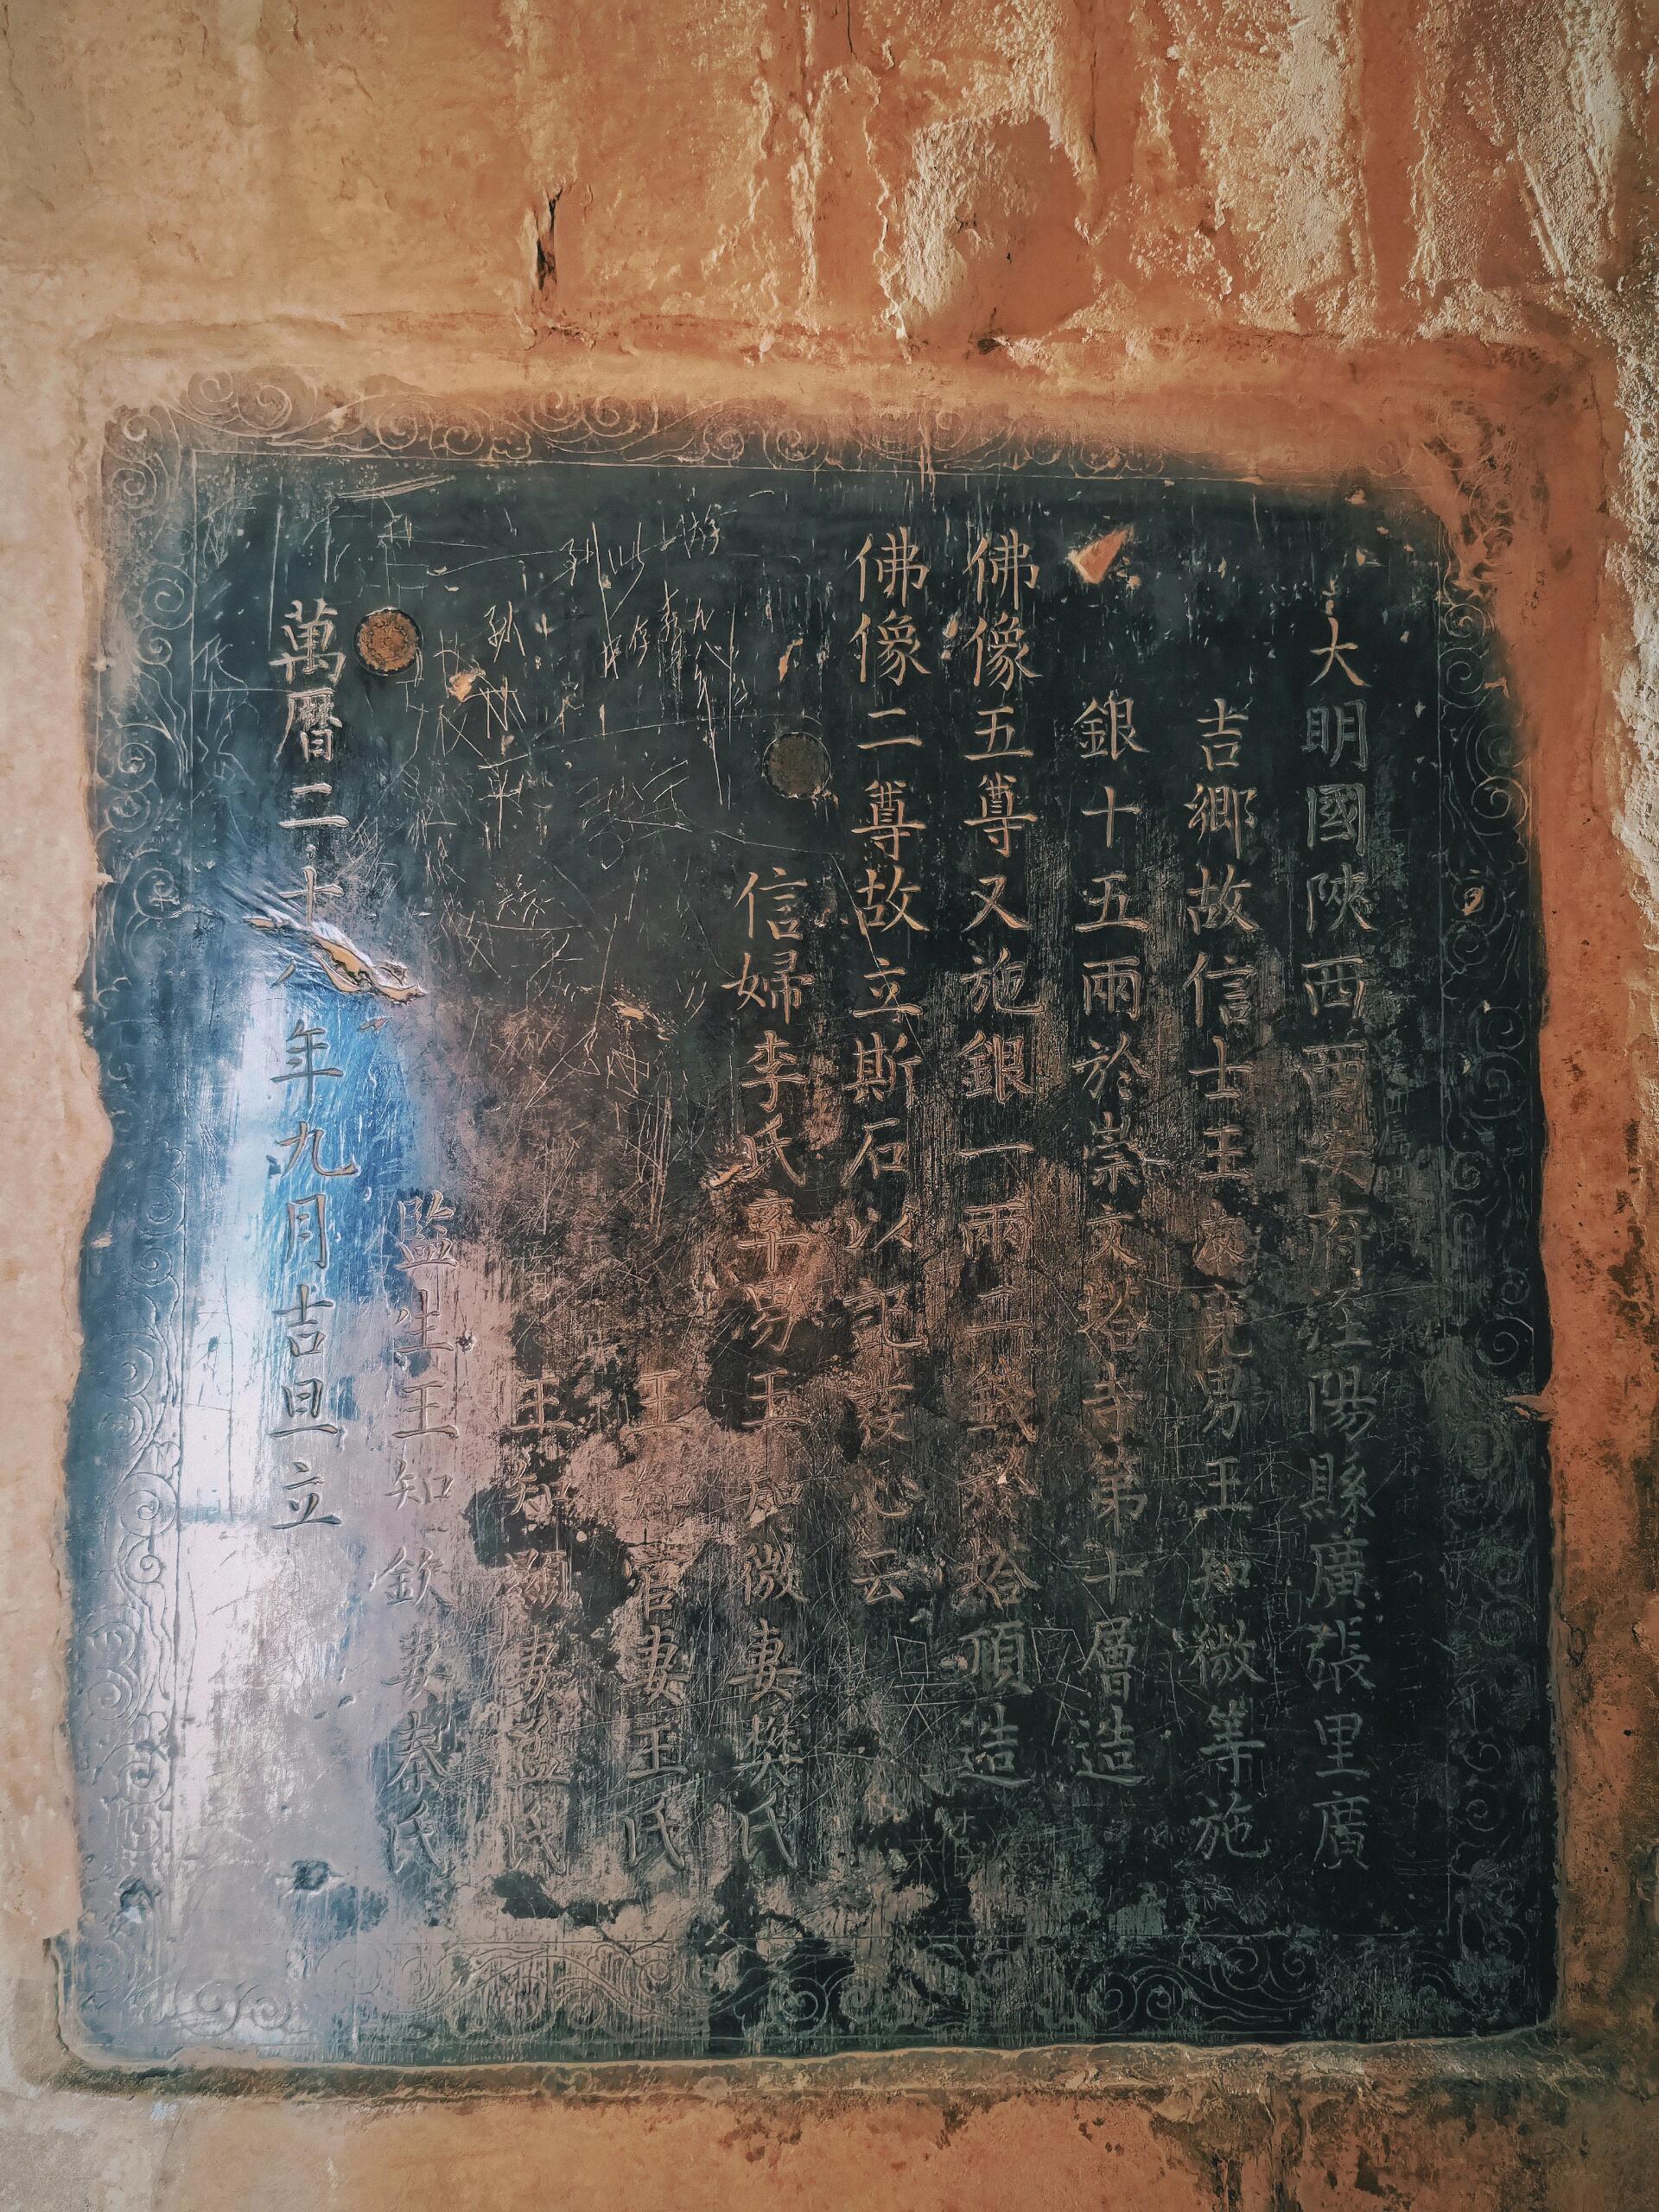 大明國陝西西安府涇陽縣廣張里廣
吉鄉故信士王 男王知微等施
銀十五兩於崇文塔寺弟十層造
佛像五尊又施銀一兩二錢 造
佛像二尊故立斯石以記發心云
信婦李氏率男王知微妻樊氏
王知官妻王氏
王知顯妻 氏
監生王知欽妻秦氏
萬曆二十八年九月吉旦立